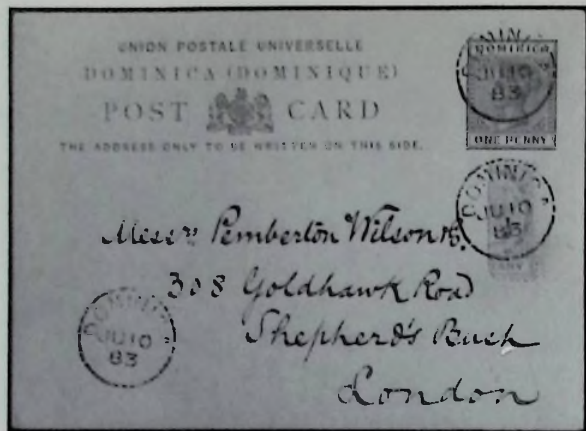 UNION POSTALE UNIVERSELLE
DOMINICA (DOMINIQUE)
POST CARD
THE ADDRESS ONLY TO BE WRITTEN ON THIS SIDE.
DOMINICA
ONE PENNY
DOMINICA
JU 10
83
DOMINICA
JU 10
83
Messrs Pemberton Wilson &
308 Goldhawk Road
Shepherd's Bush
London
DOMINICA
JU 10
83